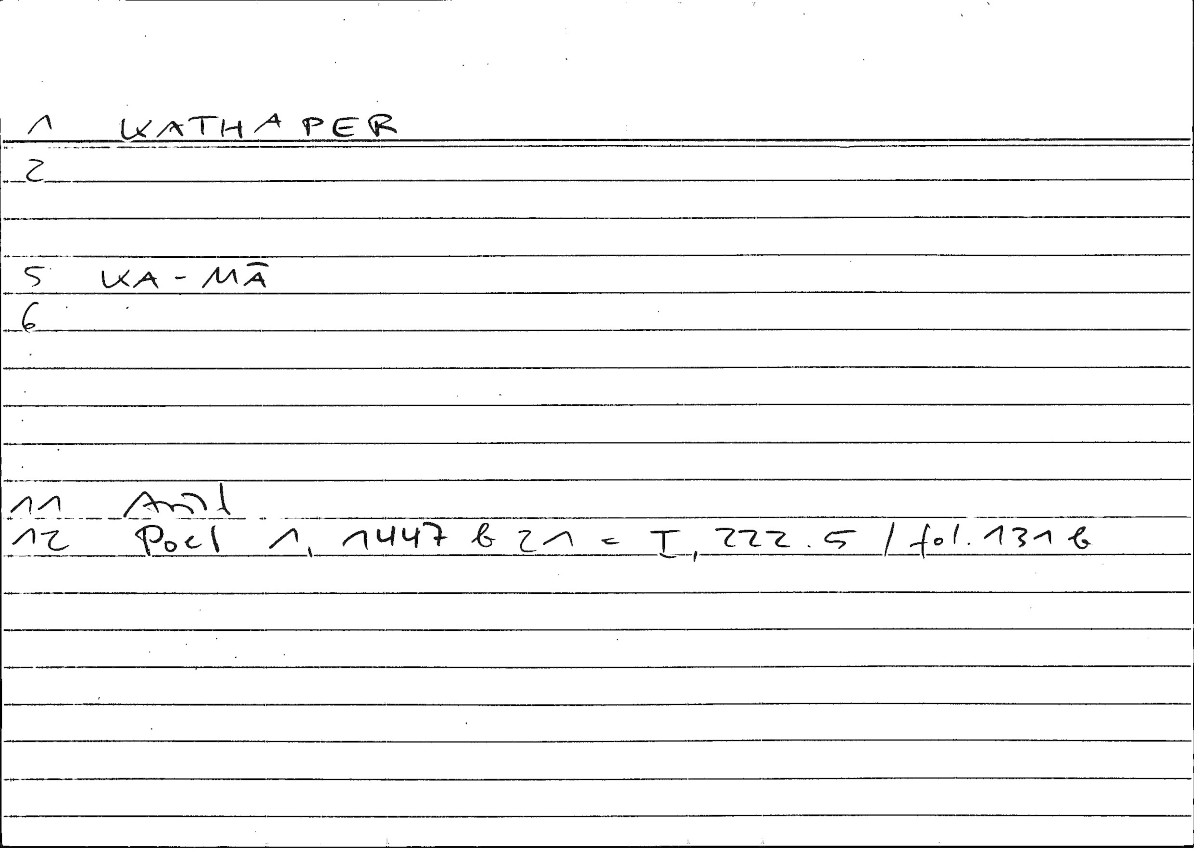 1 KATHAPER
2
5 KA-MĀ
6
11 Arist
12 Poet 1, 1447 b 21 = I, 222.5 / fol. 131 b